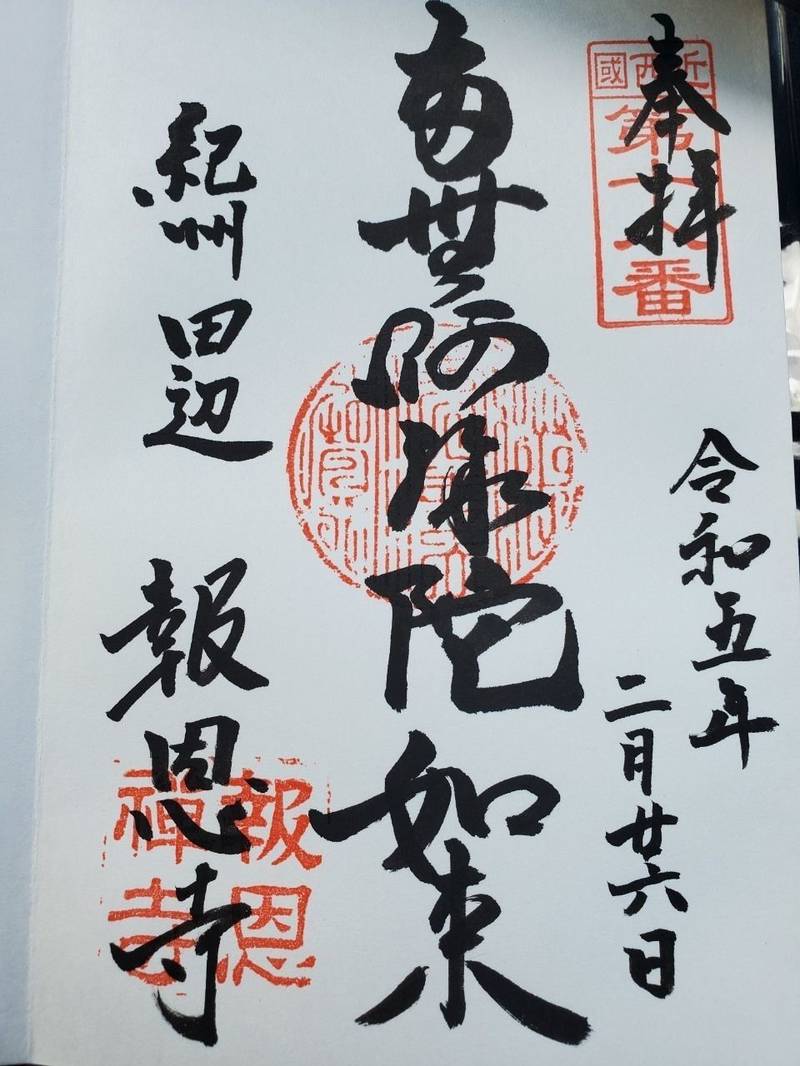 奉拝
近西國
第
番
令和五年
二月廿六日
南無阿弥陀如来
紀州 田辺 報恩寺
報恩
禅寺